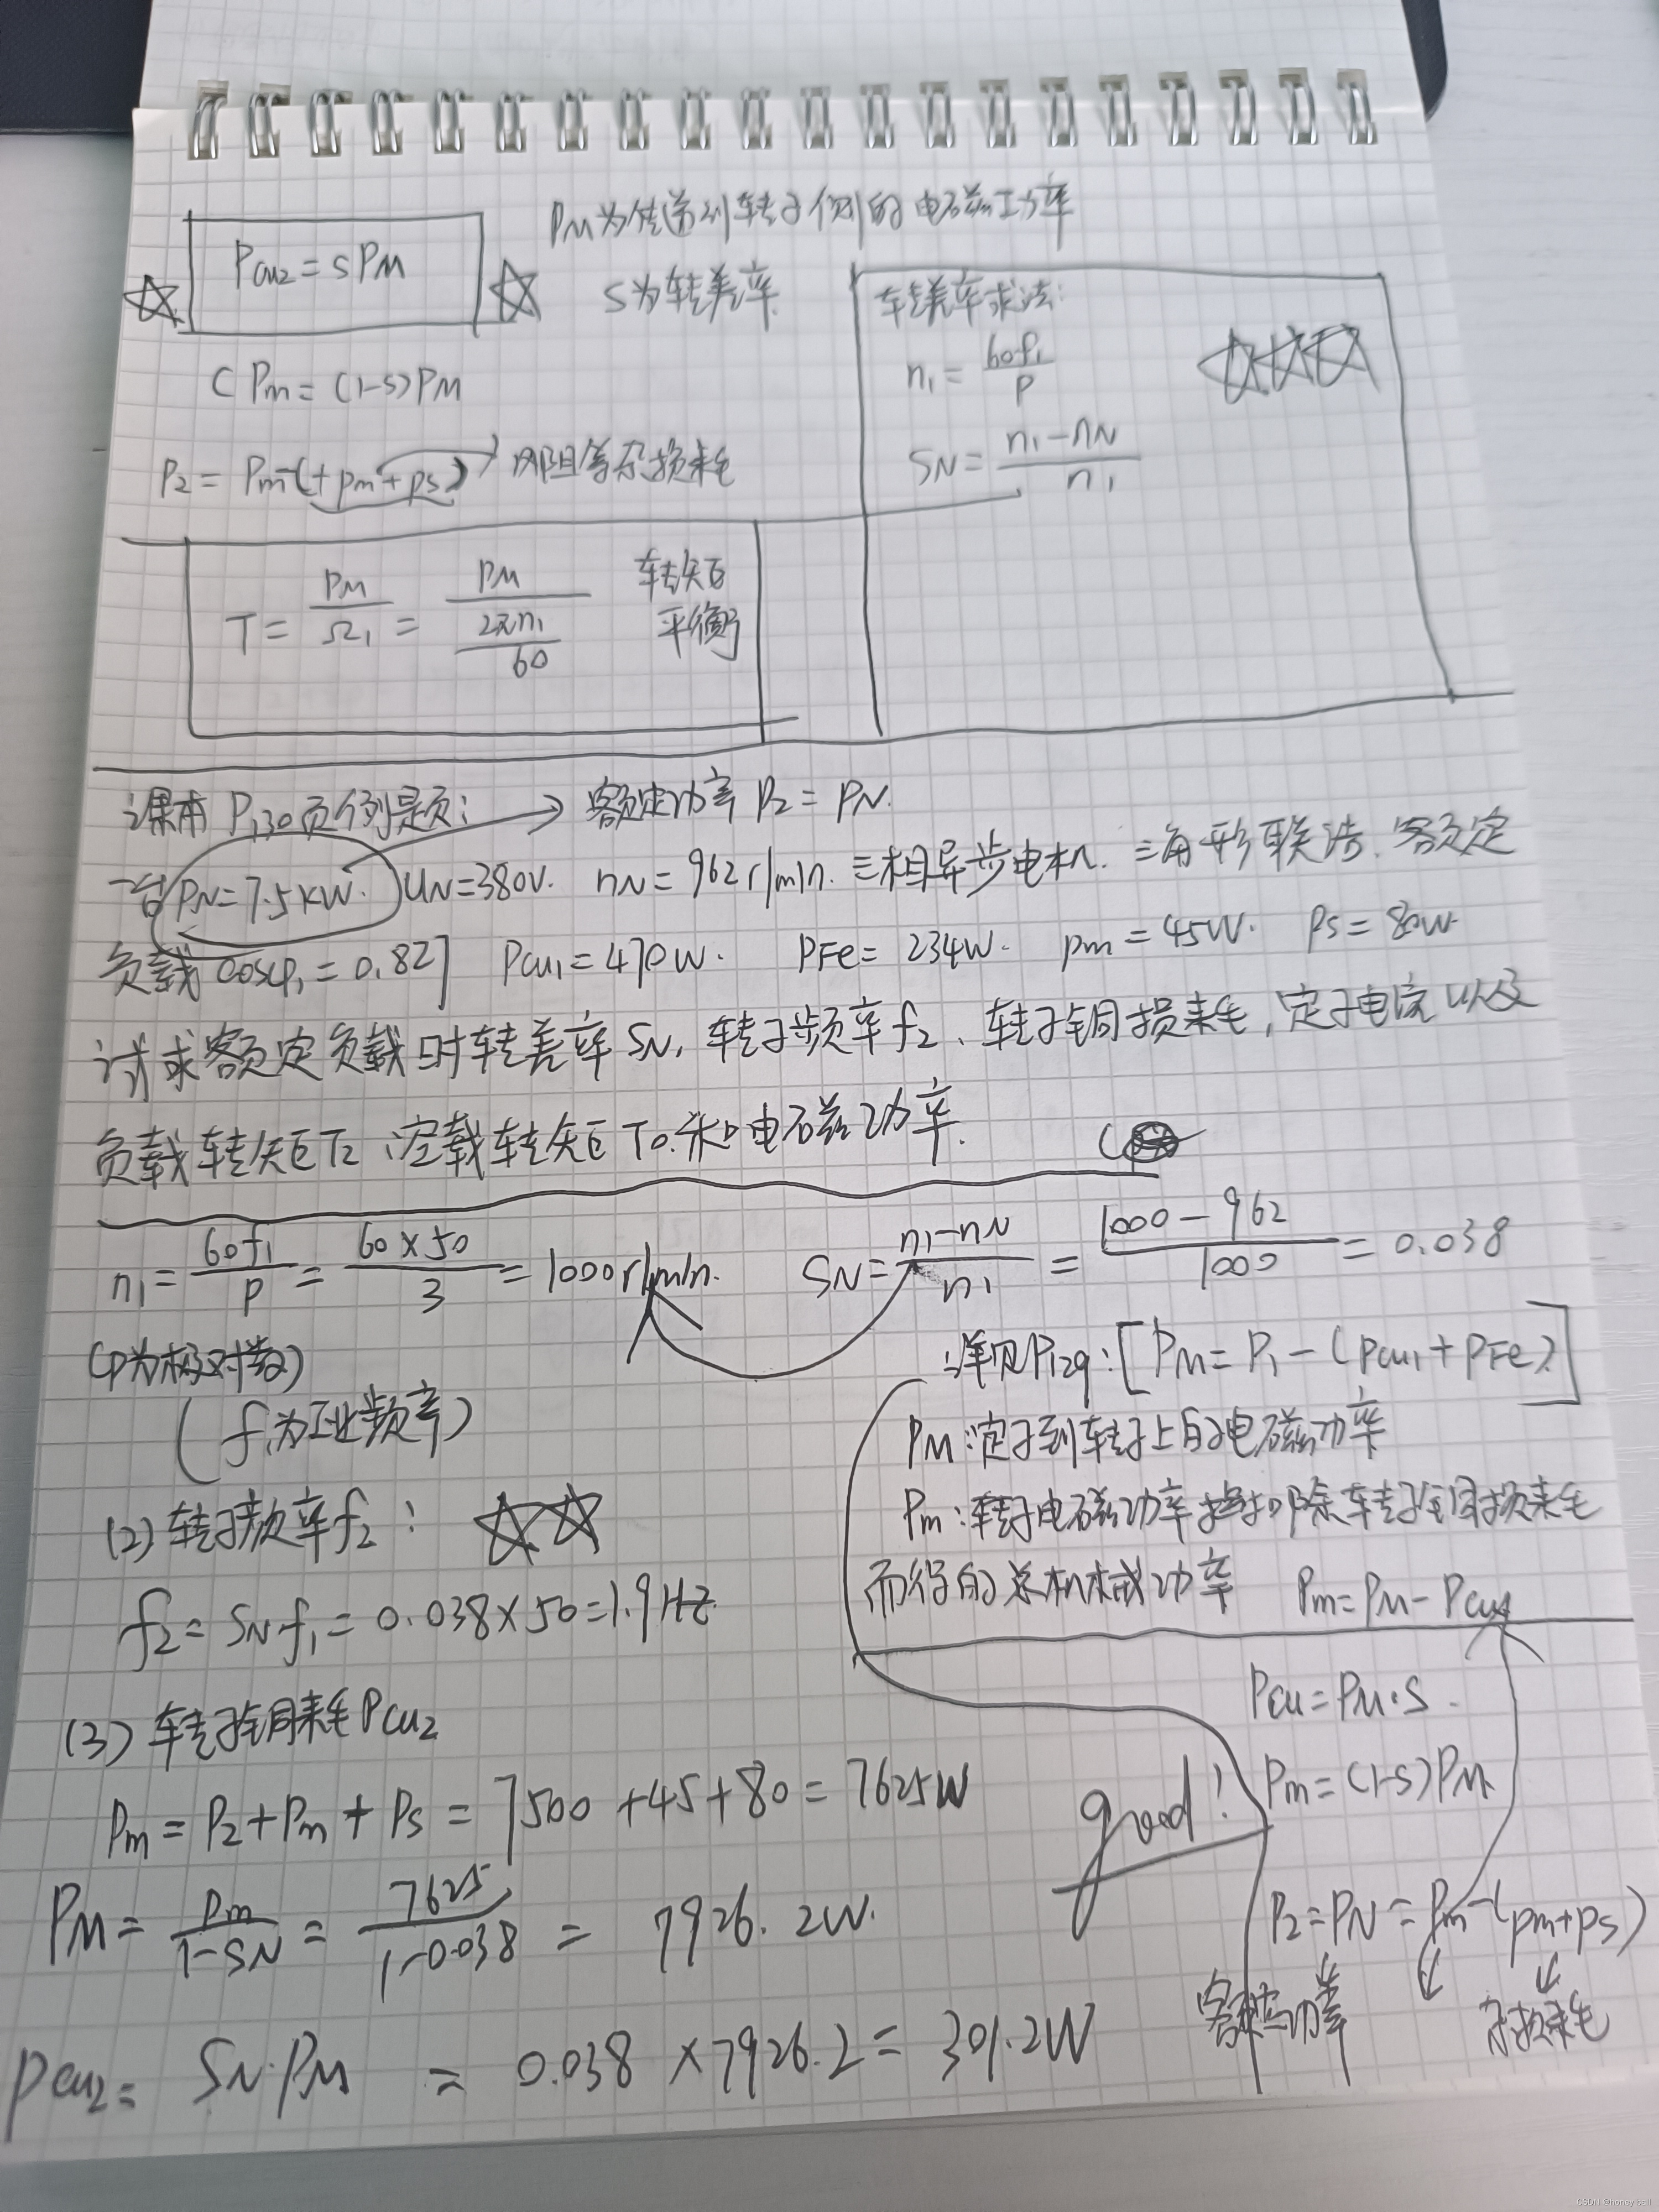 PM为传递到转子侧的电磁功率
Pcu2=SPM
S为转差率
转差率求法:
n1=60f1/P
SN=(n1-nN)/n1
Pm=(1-S)PM
P2=Pm-(+pm+ps)→内阻等杂损耗
T=PM/Ω1=PM/(2πn1/60)
转矩
平衡
课本P130页例题:→额定功率P2=PN.
一台PN=7.5KW. UN=380V. nN=962r/min. 三相异步电机. 三角形联结. 额定
负载cosφ1=0.827 Pcu1=470W. PFe=234W. pm=45W. Ps=80W.
试求额定负载时转差率SN,转子频率f2、转子铜损耗,定子电流以及
负载转矩T2、空载转矩T0.和电磁功率.
n1=60f1/P=60×50/3=1000r/min. SN=(n1-nN)/n1=(1000-962)/1000=0.038
(P为极对数)
(f1为工业频率)
详见P129:[PM=P1-(Pcu1+PFe)]
PM:定子到转子上的电磁功率
Pm:转子电磁功率扣除转子铜损耗
而得的总机械功率 Pm=PM-Pcu
(2)转子频率f2:
f2=SN·f1=0.038×50=1.9Hz
(3)转子铜耗Pcu2
Pcu=PM·S.
Pm=P2+Pm+Ps=7500+45+80=7625W
good!
Pm=(1-S)PM
PM=Pm/(1-SN)=7625/(1-0.038)=7926.2W.
P2=PN=Pm-(pm+ps)
功率
杂损耗
Pcu2=SN·PM=0.038×7926.2=301.2W
CSDN @honey ball